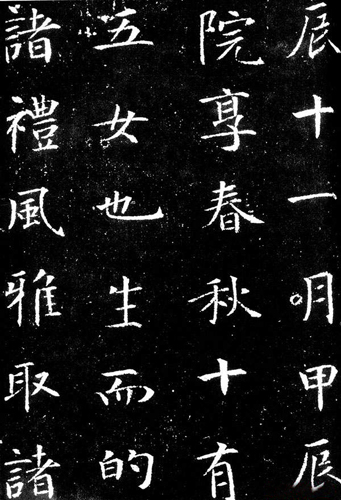 辰十一明甲辰
院享春秋十有
五女也生而的
諸禮風雅取諸